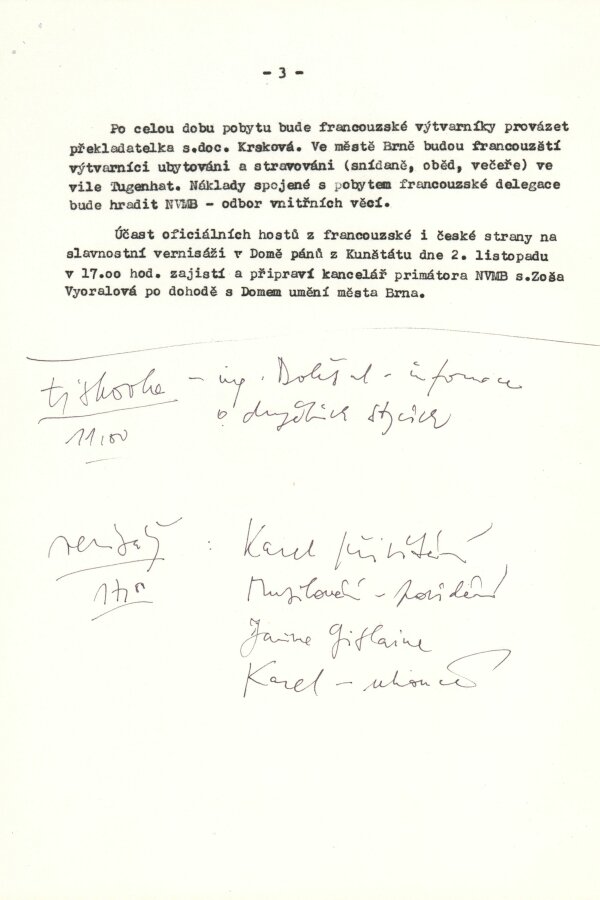 - 3 -
Po celou dobu pobytu bude francouzské výtvarníky provázet
překladatelka s.doc. Krsková. Ve městě Brně budou francouzští
výtvarníci ubytováni a stravováni (snídaně, oběd, večeře) ve
vile Tugenhat. Náklady spojené s pobytem francouzské delegace
bude hradit NVMB - odbor vnitřních věcí.
Účast oficiálních hostů z francouzské i české strany na
slavnostní vernisáži v Domě pánů z Kunštátu dne 2. listopadu
v 17.oo hod. zajistí a připraví kancelář primátora NVMB s.Zoša
Vyoralová po dohodě s Domem umění města Brna.
tiskovka - ing. informace
o družebních stycích
11,00
vernisáž : Karel přivítání
17,00 - povídání
Janine Gislaine
Karel - ukončí